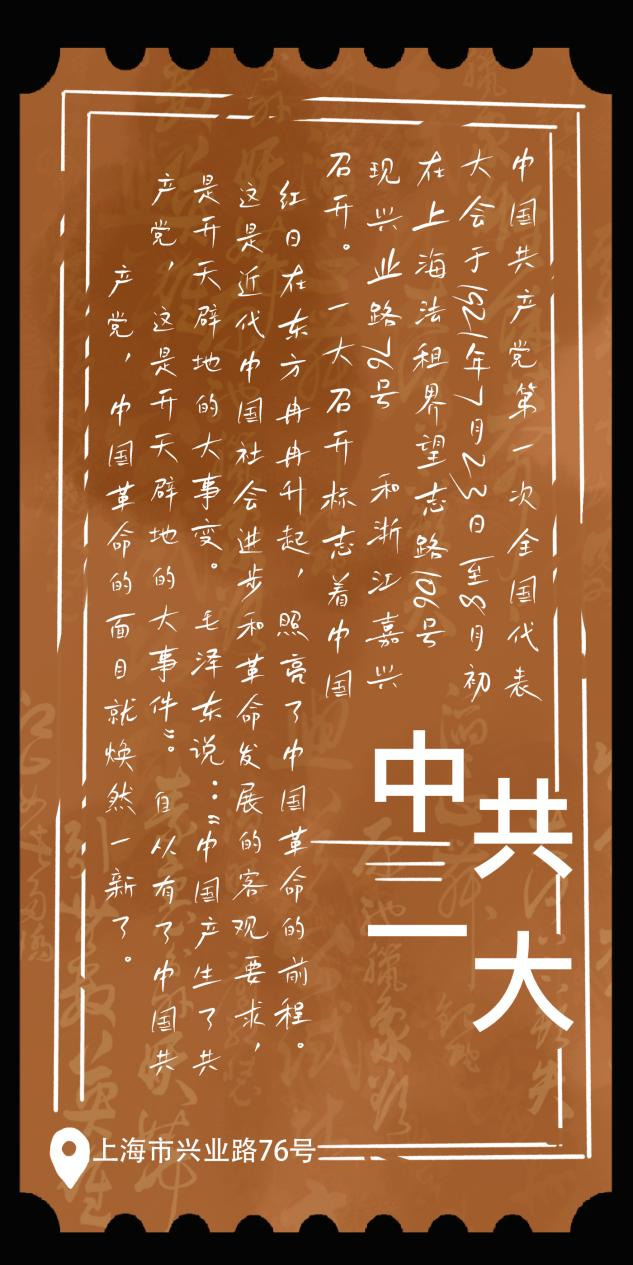 中国共产党第一次全国代表
大会于1921年7月23日至8月初
在上海法租界望志路106号
现兴业路76号 和浙江嘉兴
召开。一大召开标志着中国
红日在东方冉冉升起，照亮了中国革命的前程。
这是近代中国社会进步和革命发展的客观要求，
是开天辟地的大事变。毛泽东说：“中国产生了共
产党，这是开天辟地的大事件”。自从有了中国共
产党，中国革命的面目就焕然一新了。
中共一大
上海市兴业路76号